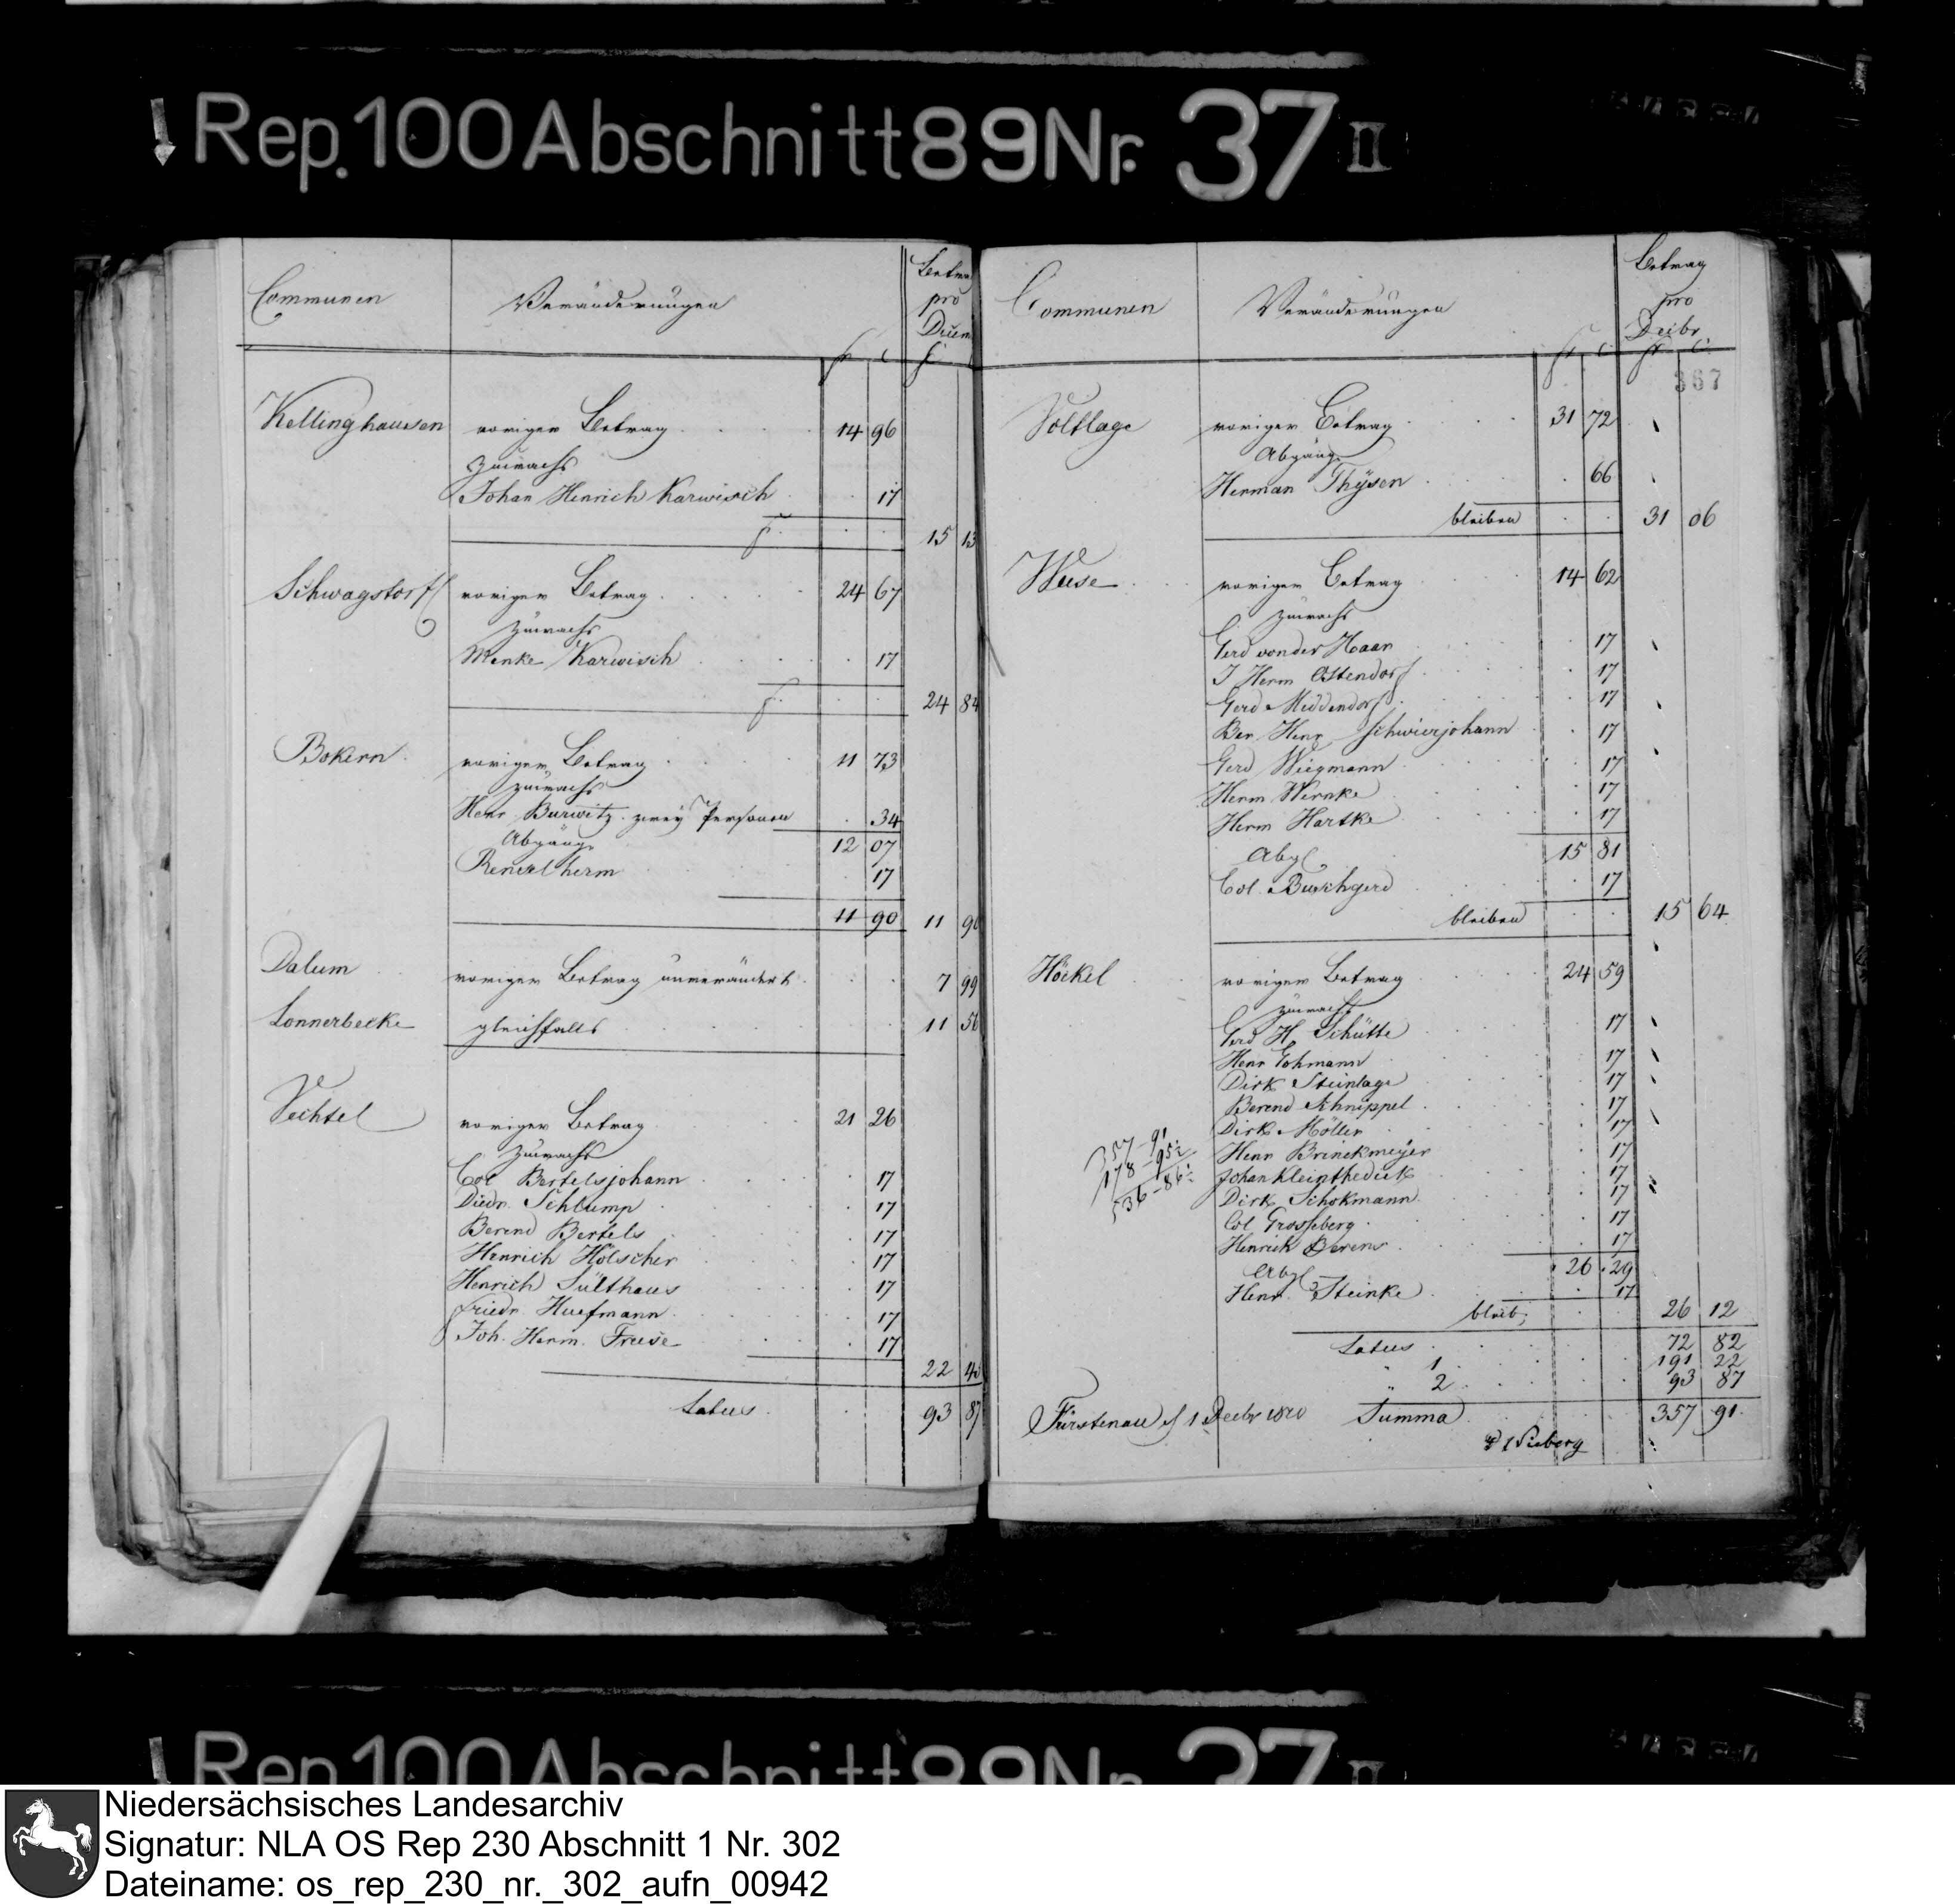 Rep. 100 Abschnitt 89 Nr. 37 II
Communen Veränderungen Betrag
pro
Decem
fr c fr
Kellinghausen voriger Betrag 14 96
Zuwachs
Johan Henrich Karwisch 17
15 13
Schwagstorf voriger Betrag 24 67
Zuwachs
Menke Karwisch 17
24 84
Bokern voriger Betrag 11 73
Zuwachs
Henr Burwitz zwey Personen 34
Abgang 12 07
Renzelherm 17
11 90 11 90
Dalum voriger Betrag unverändert 7 99
Lonnerbecke gleichfalls 11 56
Vechtel voriger Betrag 21 26
Zuwachs
Col Bertelsjohann 17
Diedr. Schlump 17
Berend Bertels 17
Henrich Hölscher 17
Henrich Sülthaus 17
Friedr. Huefmann 17
Joh. Herm. Freese 17
22 45
Latus 93 87
Communen Veränderungen Betrag
pro
Decbr
fr c fr c
367
Voltlage voriger Betrag 31 72
Abgang
Herman Thÿsen 66
bleiben 31 06
Weese voriger Betrag 14 62
Zuwachs
Gerd von der Haar 17
J Herm Ostendorf 17
Gerd Middendorf 17
Ber. Henr Schwierjohann 17
Gerd Wiegmann 17
Herm Wernke 17
Herm Hartke 17
Abg 15 81
Col. Buschgerd 17
bleiben 15 64
Höckel voriger Betrag 24 59
Zuwachs
Gerd H Schütte 17
Henr Gohmann 17
Dirk Steinlage 17
Berend Schnippel 17
Dirk Möller 17
Henr Brinckmeÿer 17
Johan Kleinthedieck 17
Dirk Schokmann 17
Col Grosseberg 17
Henrich Berens 17
357-91
178-95½
536-86½
Abg 26 29
Henr. Steinke 17
bleib: 26 12
Latus 72 82
" 1 191 22
" 2 93 87
Fürstenau d 1 Decbr 1810 Summa 357 91
Sieberg
Rep. 100 Abschnitt 89 Nr. 37 II
Niedersächsisches Landesarchiv
Signatur: NLA OS Rep 230 Abschnitt 1 Nr. 302
Dateiname: os_rep_230_nr._302_aufn_00942